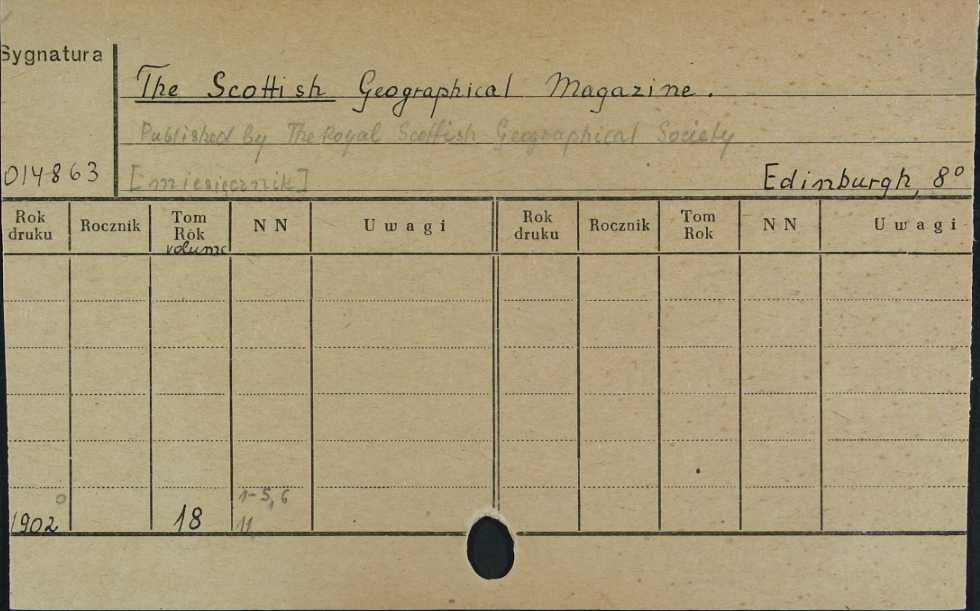 Sygnatura
The Scottish Geographical Magazine.
Published by The Royal Scottish Geographical Society
014863 [miesięcznik] Edinburgh, 8°
Rok druku Rocznik Tom Rok volume NN Uwagi Rok druku Rocznik Tom Rok NN Uwagi
0 1-5, 6
1902 18 11